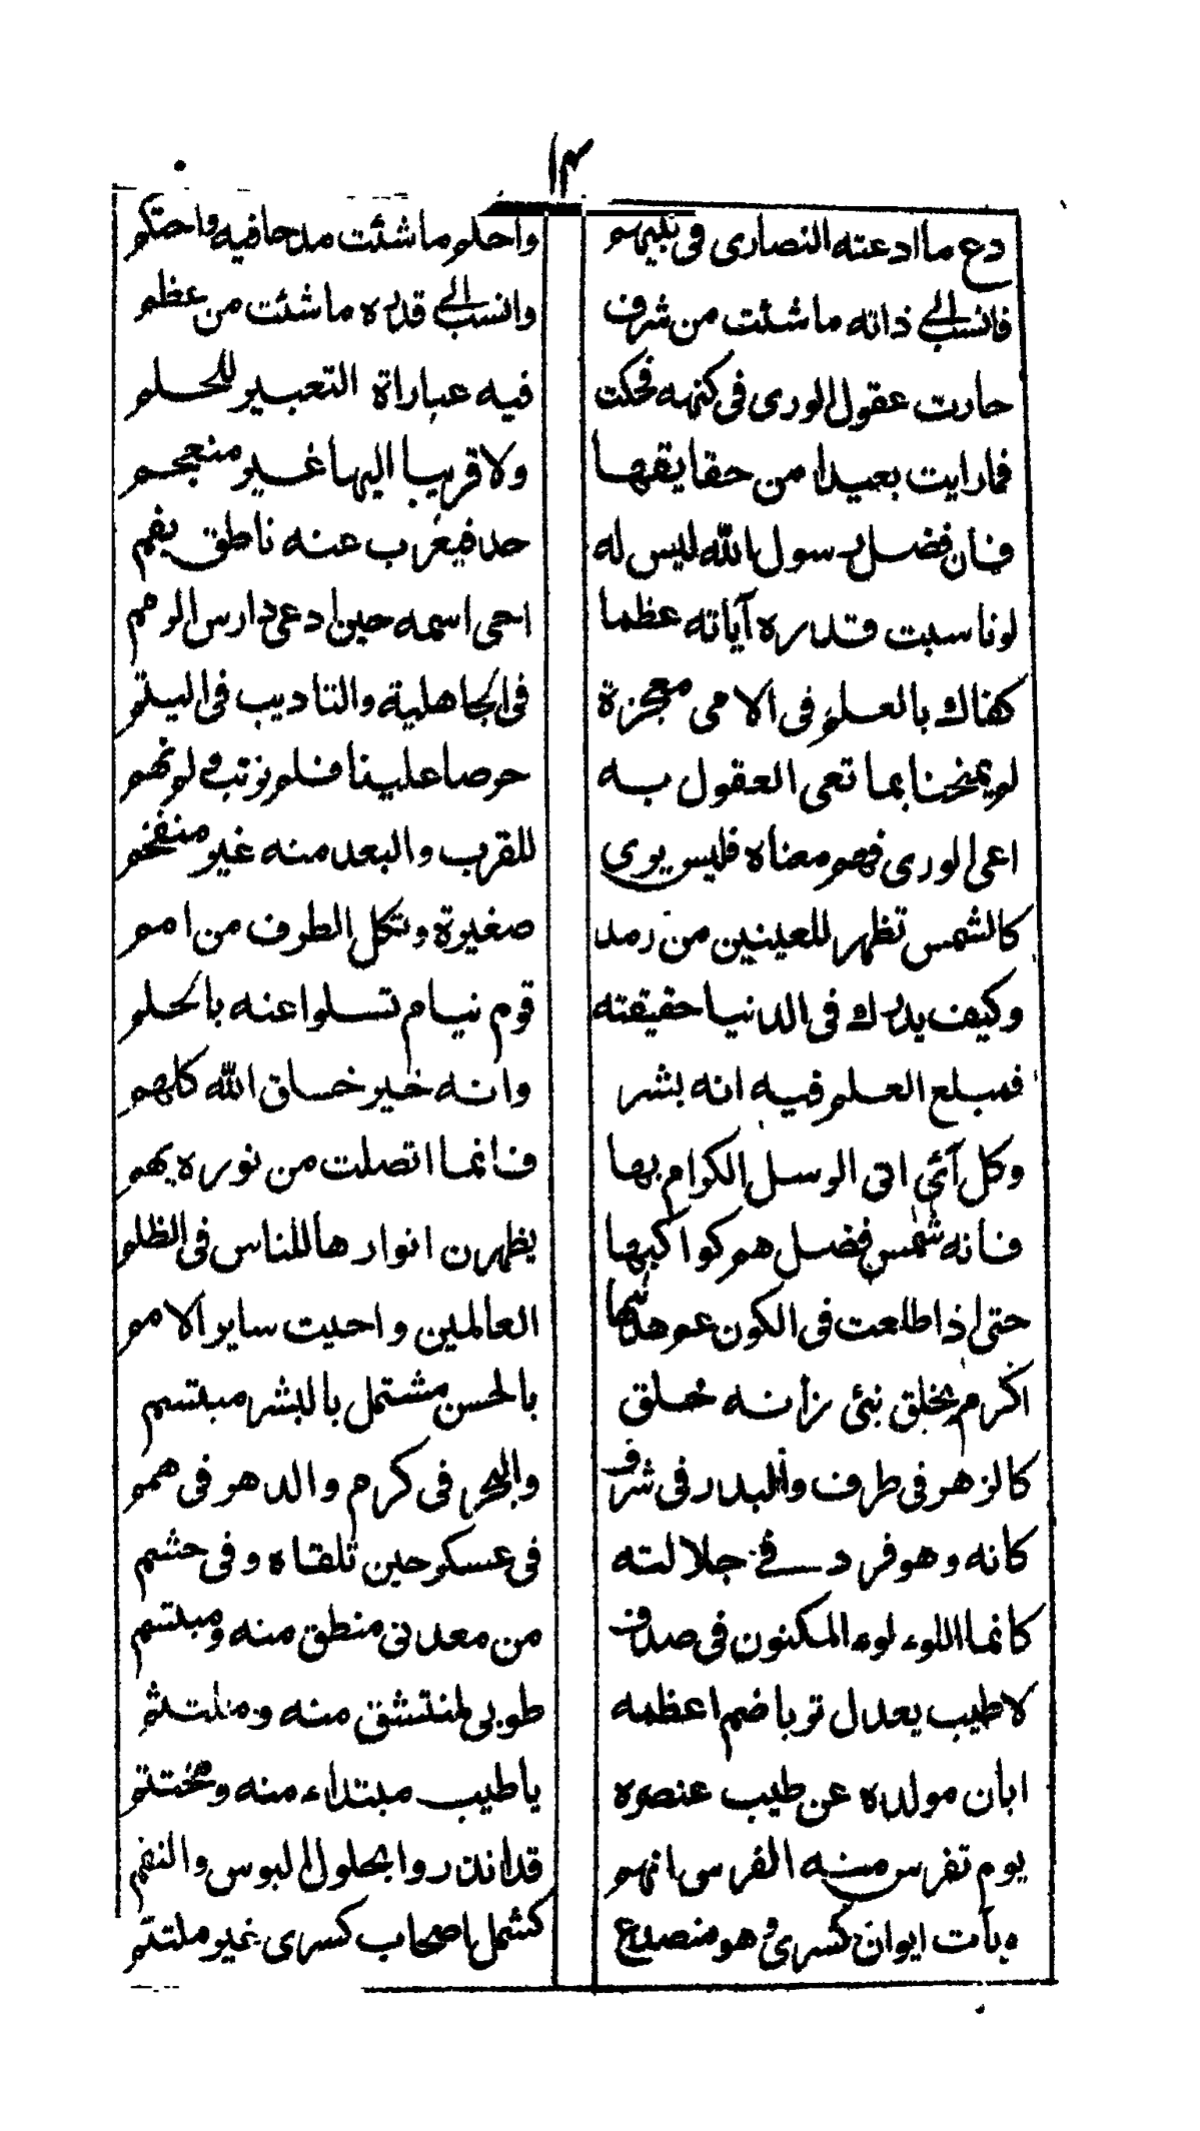 ١٣
دع ما ادعته النصارى فى نبيهم واحكم ما شئت مدحا فيه واحتكم
فانسب الى ذاته ما شئت من شرف وانسب الى قدره ما شئت من عظم
حارت عقول الورى فى كنهه فحكت فيه عباراة التعبير للحلم
فما رايت بعيدا من حقايقها ولا قريبا اليها غير منعجم
فان فضل رسول الله ليس له حد فيغرب عنه ناطق بفم
لو ناسبت قدره آياته عظما احى اسمه حين ادعى دارس الرمم
كفاك بالعلم فى الامى معجزة فى الجاهلية والتاديب فى اليتم
لم يمنحنا بما تعى العقول به حرصا علينا فلم نرتب ولم نهم
اعى الورى فهم معناه فليس يرى للقرب والبعد منه غير منفخم
كالشمس تظهر للعينين من رمد صغيرة وتكل الطرف من امم
وكيف يدرك فى الدنيا حقيقته قوم نيام تسلوا عنه بالحلم
فمبلع العلم فيه انه بشر وانه خير خساق الله كلهم
وكل آئى اتى الرسل الكرام بها فانما اتصلت من نوره بهم
فانه شمس فضل هم كواكبها يظهرن انوارها للناس فى الظلم
حتى اذا طلعت فى الكون عم هداها العالمين واحيت ساير الامم
اكرم بخلق نبئ زانه خلق بالحسن مشتمل بالبشر مبتسم
كالزهر فى طرف والبدر فى شرف والبحر فى كرم والدهر فى همم
كانه وهو فرد فى جلالته فى عسكر حين تلقاه وفى حشم
كانما اللوء لوء المكنون فى صدف من معدنى منطق منه ومبتسم
لاطيب يعدل تربا ضم اعظمه طوبى لمنتشق منه وملتثم
ابان مولده عن طيب عنصره يا طيب مبتداء منه ومختتم
يوم تفرس منه الفرس انهم قد انذروا بحلول البوس والنقم
وبات ايوان كسرى وهو منصدع كشمل اصحاب كسرى غير ملتئم